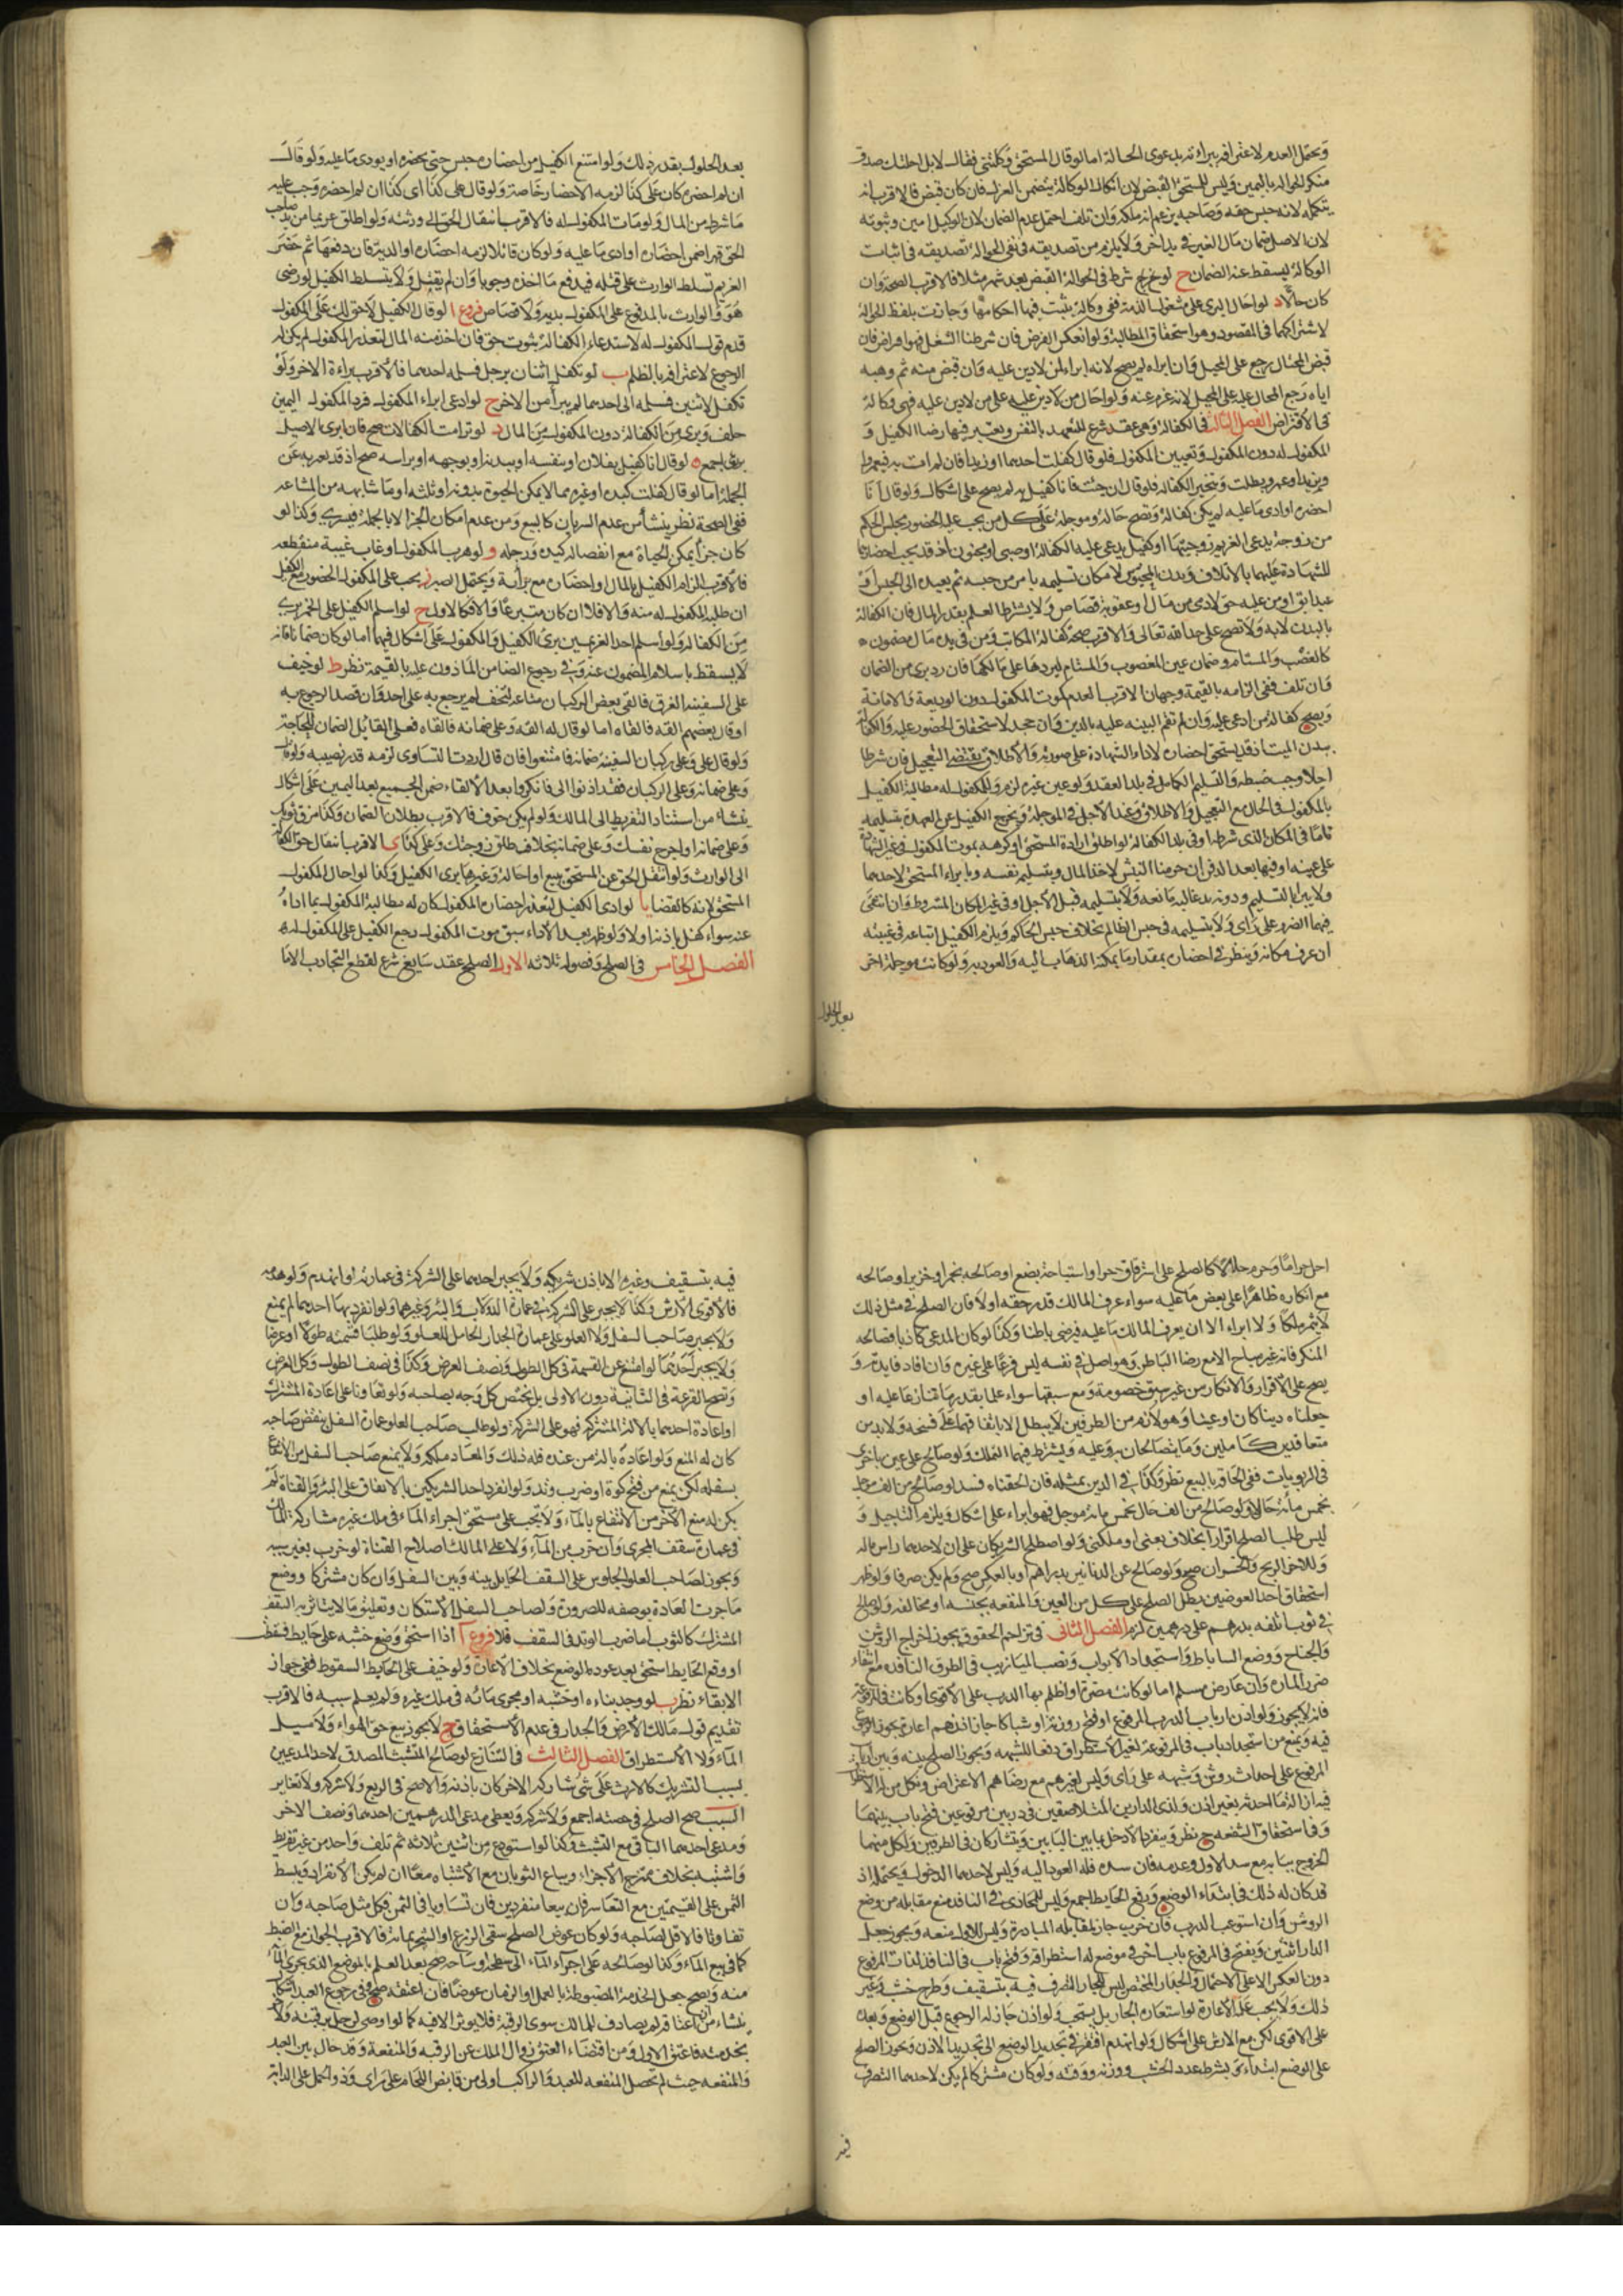 ويحتمل العدم لاعترافه ببراءته بدعوى الحوالة اما لو قال المستحق وكلتنى فقال لا بل احلتك صدق
منكر الحوالة باليمين وليس للمستحق القبض لان انكار الوكالة يتضمن العزل فان كان قبض فالاقرب انه
يتملكه لانه جنس حقه وصاحبه يزعم انه ملكه وان تلف احتمل عدم الضمان لان الوكيل امين وثبوته
لان الاصل ضمان مال الغير فى يد اخر ولا يلزم من تصديقه فى نفى الحوالة تصديقه فى اثبات
الوكالة ليسقط عنه الضمان ج لو شرط فى الحوالة القبض بعد شهر مثلا فالاقرب الصحة وان
كان حالا د لو احال البرى على مشغول الذمة فهى وكالة يثبت فيها احكامها وجازت بلفظ الحوالة
لاشتراكهما فى المقصود وهو استحقاق المطالبة ولو انعكس الفرض فان شرطنا الشغل فهو اقراض فان
قبض المحتال رجع على المحيل وان ابراه لم يصح لانه ابراء لمن لا دين عليه وان قبض منه ثم وهبه
اياه رجع المحال عليه على المحيل لانه غرم عنه ولو احال من لا دين عليه على من لا دين عليه فهى وكالة
فى الاقتراض الفصل الثالث فى الكفالة وهى عقد شرع للتعهد بالنفس ويعتبر فيها رضا الكفيل و
المكفول له دون المكفول وتعيين المكفول فلو قال كفلت احدهما او زيدا فان لم ات به فبعمرو او
بزيد او عمرو بطلت وتنجيز الكفالة فلو قال ان جئت فانا كفيل به لم يصح على اشكال ولو قال انا
احضره او ادى ما عليه لم يكن كفالة وتصح حالة وموجلة على كل من يجب عليه الحضور مجلس الحكم
من زوجة يدعى الغريم زوجيتها او كفيل يدعى عليه الكفالة او صبى او مجنون اذ قد يجب احضارهما
للشهادة عليهما بالاتلاف وبدن المحبوس لامكان تسليمه بامر من حبسه ثم يعيده الى الحبس او
عبد ابق او من عليه حق لادمى من مال او عقوبة قصاص ولا يشترط العلم بقدر المال فان الكفالة
بالبدن لا به ولا تصح على حد الله تعالى والاقرب صحة كفالة المكاتب ومن فى يده مال مضمون
كالغصب والمستام وضمان عين المغصوب والمستام ليردها على مالكها فان رد برى من الضمان
وان تلف ففى الزامه بالقيمة وجهان الاقرب العدم كموت المكفول دون الوديعة والامانة
ويصح كفالة من ادعى عليه وان لم تقم البينه عليه بالدين وان جحد لاستحقاق الحضور عليه والكفالة
ببدن الميت اذ قد يستحق احضاره لاداء الشهادة على صورته والاطلاق يقتضى التعجيل فان شرطا
اجلا وجب ضبطه والتسليم الكامل فى بلد العقد ولو عين غيره لزم وللمكفول له مطالبة الكفيل
بالمكفول فى الحال مع التعجيل والاطلاق وعند الاجل فى الموجلة ويخرج الكفيل عن العهدة بتسليمه
تاما فى المكان الذى شرطه او فى بلد الكفالة لو اطلق اراده المستحق او كرهه بموت المكفول فى غير الشهادة
على عينه او فيها بعد الدفن ان حرمنا النبش لاخذ المال وبتسليم نفسه وبابراء المستحق لاحدهما
ولا يبرا بالتسليم ودونه يد غالبة مانعه ولا بتسليمه قبل الاجل او فى غير المكان المشروط وان انتفى
فيهما الضرر على راى ولا بتسليمه فى حبس الظالم بخلاف حبس الحاكم ويلزم الكفيل اتباعه فى غيبته
ان عرف مكانه وينظر فى احضاره بمقدار ما يمكنه الذهاب اليه والعود به ولو كانت موجلة اخر
بعد الحلول
بعد الحلول بقدر ذلك ولو امتنع الكفيل من احضاره حبس حتى يحضره او يودى ما عليه ولو قال
ان لم احضره كان على كذا لزمه الاحضار خاصة ولو قال على كذا الى كذا ان لم احضره وجب عليه
ما شرط من المال ولو مات المكفول له فالاقرب انتقال الحق الى ورثته ولو اطلق غريما من يد صاحب
الحق قهرا ضمن احضاره او ادى ما عليه ولو كان قاتلا لزمه احضاره او الدية فان دفعها ثم حضر
الغريم تسلط الوارث على قتله فيدفع ما اخذه وجوبا وان لم يقتل ولا يتسلط الكفيل لو رضى
هو والوارث بالمدفوع على المكفول بديه ولا قصاص فروع ا لو قال الكفيل لا حق لك على المكفول
قدم قول المكفول له لاستدعاء الكفالة ثبوت حق فان اخذ منه المال لتعذر المكفول لم يكن له
الرجوع لاعترافه بالظلم ب لو تكفل اثنان برجل فسلمه احدهما فالاقرب براءة الاخر ولو
تكفل لاثنين فسلمه الى احدهما لم يبرأ من الاخر ج لو ادعى ابراء المكفول فرد المكفول اليمين
حلف وبرى من الكفالة دون المكفول من المال د لو ترامت الكفالات صح فان ابرى الاصيل
برى اجمع ه لو قال انا كفيل بفلان او بنفسه او ببدنه او بوجهه او براسه صح اذ قد يعبر به عن
الجملة اما لو قال كفلت كبده او غيره مما لا يمكن الحيوة بدونه او ثلثه او ما شابهه من المشاعه
ففى الصحة نظر ينشأ من عدم السريان كالبيع ومن عدم امكان الجزء الا بالجملة فيسرى وكذا لو
كان جزأ يمكن الحياة مع انفصاله كيده ورجله و لو هرب المكفول او غاب غيبة منقطعه
فالاقرب الزام الكفيل بالمال او احضاره مع براءة ويحتمل الصبر ز يجب على المكفول الحضور مع الكفيل
ان طلبه المكفول له منه والا فلا ان كان متبرعا والا فكالاول ح لو اسلم الكفيل على الخمر برى
من الكفالة ولو اسلم احد الغريمين برئ الكفيل والمكفول على اشكال فيهما اما لو كان ضمانا فانه
لا يسقط باسلام المضمون عنه وفى رجوع الضامن الماذون عليه بالقيمة نظر ط لو خيف
على السفينة الغرق فالقى بعض الركبان متاعه لتخف لم يرجع به على احد وان قصد الرجوع به
او قال بعضهم القه فالقاه اما لو قال له القه وعلى ضمانه فالقاه فعلى القائل الضمان للحاجة
ولو قال على وعلى ركبان السفينة ضمانه فامتنعوا فان قال اردت التساوى لزمه قدر نصيبه ولو قال
وعلى ضمانه وعلى الركبان فقد اذنوا لى فانكروا بعد الالقاء ضمن الجميع بعد اليمين على اشكال
ينشاء من استناد التفريط الى المالك ولو لم يكن خوف فالاقرب بطلان الضمان وكذا مزق ثوبك
وعلى ضمانه او اجرح نفسك وعلى ضمانه بخلاف طلق زوجتك وعلى كذا ى الاقرب انتقال حق الكفالة
الى الوارث ولو انتقل الحق عن المستحق ببيع او احالة وغيرها برى الكفيل وكذا لو احال المكفول
المستحق لانه كالقضا يا لو ادى الكفيل لتعذر احضاره المكفول كان له مطالبة المكفول بما اداه
عنه سواء كفل باذنه او لا ولو ظهر بعد الاداء سبق موت المكفول رجع الكفيل على المكفول له
الفصل الخامس فى الصلح وفصوله ثلاثه الاول الصلح عقد سايغ شرع لقطع التجاذب الا ما
احل حراما او حرم حلالا كالصلح على استرقاق حر او استباحة بضع او صالحه بخمر او خنزير او صالحه
مع انكاره ظاهرا على بعض ما عليه سواء عرف المالك قدر حقه او لا فان الصلح فى مثل ذلك
لا يثمر ملكا ولا ابراء الا ان يعرف المالك ما عليه فيرضى باطنا وكذا لو كان المدعى كاذبا فصالحه
المنكر فانه غير مباح الا مع رضا الباطن وهو اصل فى نفسه ليس فرعا على غيره وان افاد فايدته و
يصح على الاقرار والانكار من غير سبق خصومة ومع سبقها سواء علما بقدر ما تنازعا عليه او
جهلاه دينا كان او عينا وهو لازم من الطرفين لا يبطل الا باتفاقهما على فسخه ولا بد من
متعاقدين كاملين وما يتصالحان به وعليه ويشترط فيهما التملك ولو صالح على عين باخرى
فى الربويات ففى الحاقه بالبيع نظر وكذا فى الدين بمثله فان الحقناه فسد لو صالح من الف موجل
بخمس مائة حالا ولو صالح من الف حال بخمس مائة موجل فهو ابراء على اشكال ويلزم التاجيل و
ليس طلب الصلح اقرارا بخلاف بعنى او ملكنى ولو اصطلح الشريكان على ان لاحدهما راس ماله
وللاخر الربح والخسران صح ولو صالح عن الدنانير بدراهم او بالعكس صح ولم يكن صرفا ولو ظهر
استحقاق احد العوضين بطل الصلح على كل من العين والمنفعه بجنسه او مخالفه ولو صالح
فى ثوب اتلفه بدرهم على درهمين لزم الفصل الثانى فى تزاحم الحقوق ويجوز اخراج الروشن
والجناح ووضع الساباط واستجداد الابواب ونصب الميازيب فى الطرق النافذه مع انتفاء
ضرر المارة وان عارض مسلم اما لو كانت مضرة او اظلم بها الدرب على الاقوى او كانت فى المرفوعة
فانه لا يجوز ولو اذن ارباب الدرب المرفوع او فتح روزنة او شباكا جاز اذنهم اعارة يجوز الرجوع
فيه ويمنع من استجداد باب فى المرفوعة لغير الاستطراق دفعا للشبهه ويجوز الصلح بينه وبين ارباب
المرفوع على احداث روشن وشبهه على راى وليس لغيرهم مع رضاهم الاعتراض ولكل من له الاستطراق
فيه ازالة ما احدثه بغير اذن ولذى الدارين المتلاصقين فى دربين مرفوعين فتح باب بينهما
وفى استحقاق الشفعه ح نظر وينفرد الادخل بما بين البابين ويتشاركان فى الطرفين ولكل منهما
الخروج ببابه مع سد الاول وعدمه فان سده فله العود اليه وليس لاحدهما الدخول ويحتمل اذ
قد كان له ذلك فى ابتداء الوضع ورفع الحايط اجمع وليس للمحاذى فى النافذ منع مقابله من وضع
الروشن وان استوعب الدرب فان خرب جاز لمقابله المبادرة وليس للاول منعه ويجوز جعل
الدار اثنتين ويفتح فى المرفوع باب اخر فى موضع له استطراقه وفتح باب فى النافذ لذات المرفوع
دون العكس الا على الاحتمال والجدار المختص ليس للجار التصرف فيه بتسقيف وطرح خشب وغير
ذلك ولا يجب على الاعارة لو استعاره الجار بل يستحب ولو اذن جاز له الرجوع قبل الوضع وبعده
على الاقوى لكن مع الارش على اشكال ولو انهدم افتقر فى تجديد الوضع الى تجديد الاذن ويجوز الصلح
على الوضع ابتداء ويشترط عدد الخشب ووزنه ووقته ولو كان مشتركا لم يكن لاحدهما التصرف
فيه
فيه بتسقيف وغيره الا باذن شريكه ولا يجبر احدهما على الشركة فى عمارته لو انهدم ولو هدمه
فالاقوى الارش وكذا لا يجبر على الشركة فى عمارة الدولاب والبئر وغيرهما ولو انفرد بها احدهما لم يمنع
ولا يجبر صاحب السفل ولا العلو على عمارة الجدار الحامل للعلو ولو طلبا قسمته طولا او عرضا
ولا يجبر احدهما لو امتنع عن القسمة فى كل الطول ونصف العرض وكذا فى نصف الطول وكل العرض
وتصح القرعة فى الثانية دون الاولى بل يختص كل وجه بصاحبه ولو تعاونا على اعادة المشترك
او اعادة احدهما بالالة المشتركه فهو على الشركة ولو طلب صاحب العلو عمارة السفل بنقض صاحبه
كان له المنع ولو اعاده بآلة من عنده فله ذلك والمعاد ملكه ولا يمنع صاحب السفل من الانتفاع
بسفله لكن يمنع من فتح كوة او ضرب وتد ولو انفرد احد الشريكين بالانفاق على البئر والقناة لم
يكن له منع الاخر من الانتفاع بالماء ولا تجب على مستحق اجراء الماء فى ملك غيره مشاركة المالك
فى عمارة سقف المجرى وان خرب من الماء ولا على المالك اصلاح القناة لو خرب بغير سببه
ويجوز لصاحب العلو الجلوس على السقف الحايل بينه وبين السفل وان كان مشتركا ووضع
ما جرت العادة بوضعه للضرورة ولصاحب السفل الاستكنان وتعليق ما لا يتاثر به السقف
المشترك كالثوب اما ضرب الوتد فى السقف فلا فروع آ اذا استحق وضع خشبه على حايط فسقط
او وقع الحايط استحق بعد عوده الوضع بخلاف الاعارة ولو خيف على الحايط السقوط ففى جواز
الابقاء نظر ب لو وجد بناءه او خشبه او مجرى مائه فى ملك غيره ولم يعلم سببه فالاقرب
تقديم قول مالك الارض والجدار فى عدم الاستحقاق ج لا يجوز بيع حق الهواء ولا مسيل
الماء ولا الاستطراق الفصل الثالث فى التنازع لو صالح المتشبث المصدق لاحد المدعيين
بسبب التشريك كالارث على شىء شاركه الاخر كان باذنه والا صح فى الربع ولا شركه ولا تغاير
السبب صح الصلح فى حصته اجمع ولا شركه ويعطى مدعى الدرهمين احدهما ونصف الاخر
ومدعى احدهما الباقى مع التشبث وكذا لو استودع من اثنين ثلاثه ثم تلف واحد من غير تفريط
واشتبه بخلاف ممتزج الاجزاء ويباع الثوبان مع الاشتباه معا ان لم يكن الانفراد ويبسط
الثمن على القيمتين مع التعاسر فان بيعا منفردين فان تساويا فى الثمن فلكل مثل صاحبه وان
تفاوتا فالاقل لصاحبه ولو كان عوض الصلح سقى الزرع او الشجر بمائه فالاقرب الجواز مع الضبط
كما فى بيع الماء وكذا لو صالحه على اجراء الماء الى سطحه او ساحته صح بعد العلم بالموضع الذى يجرى الماء
منه ويصح جعل الخدمة المضبوطة بالعمل او الزمان عوضا فان اعتقه صح وفى رجوع العبد اشكال
ينشاء من ان اعتاقه لم يصادف للمالك سوى الرقبة فلا يوثر الا فيه كما لو اوصى لرجل برقبته ولاخر
بخدمته فاعتق الاول ومن اقتضاء العتق زوال الملك عن الرقبه والمنفعة وقد حال بين العبد
والمنفعه حيث لم تحصل المنفعه للعبد والراكب اولى من قابض اللجام على راى وذو الحمل على الدابة